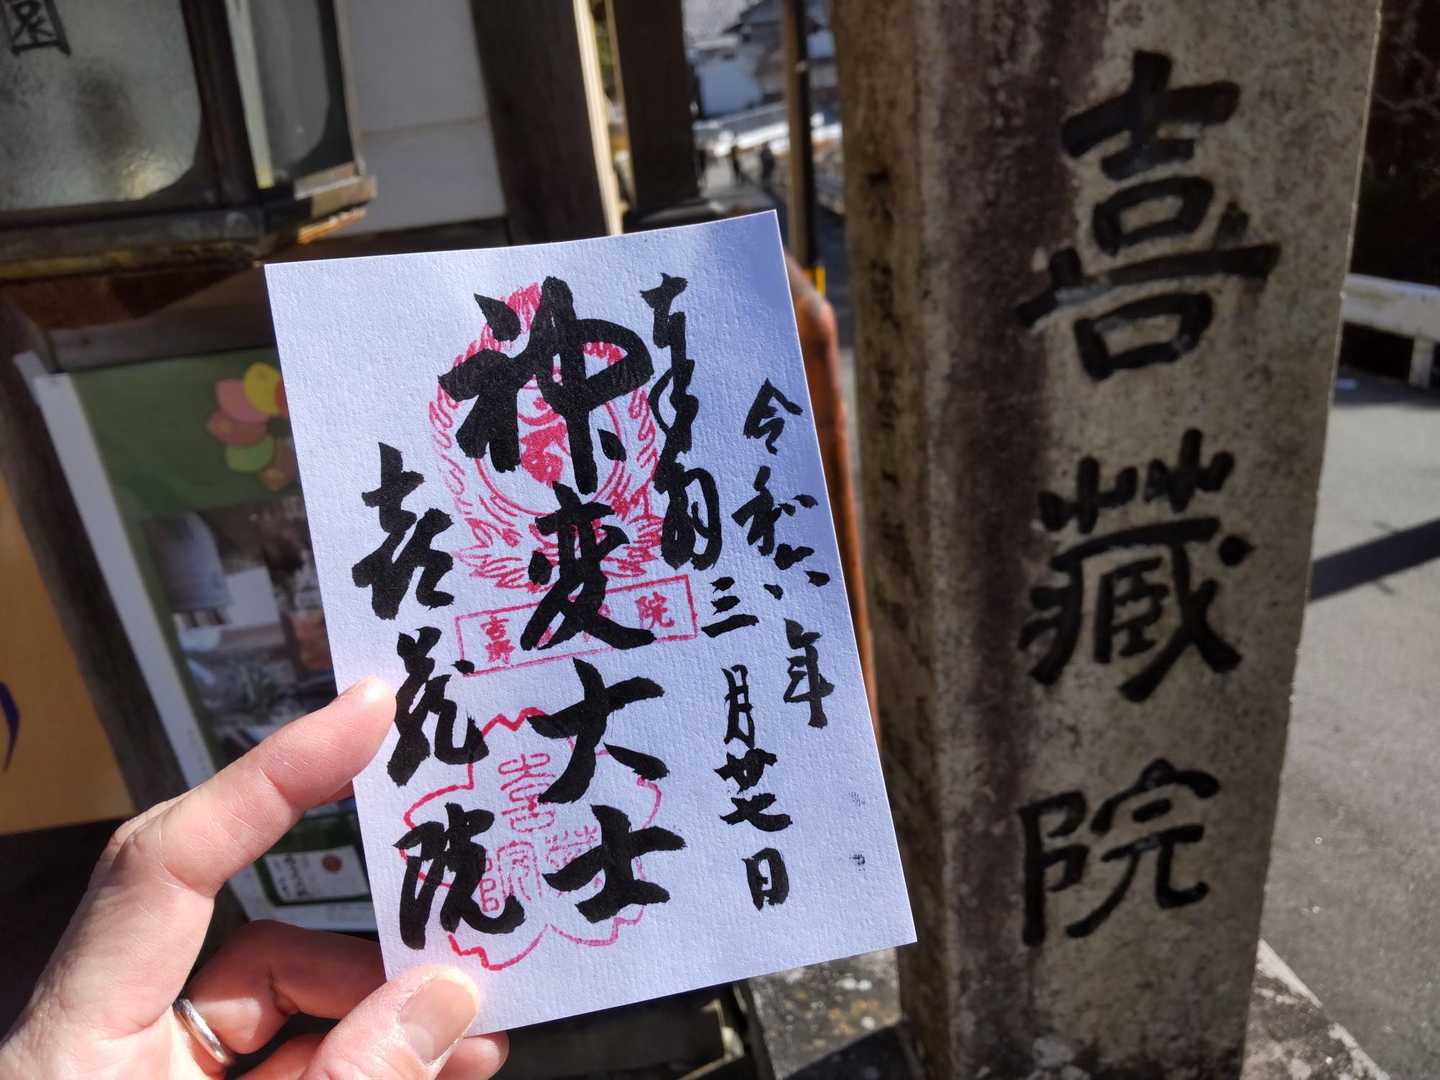 喜藏院
奉拝
令和六年
三月廿七日
神変大士
喜蔵院
吉野
院
喜蔵院
園